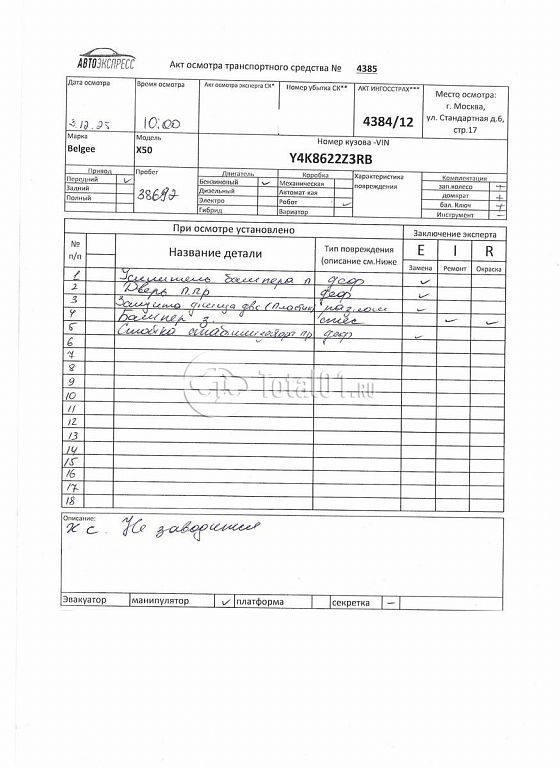 АВТОЭКСПРЕСС
Акт осмотра транспортного средства № 4385
Дата осмотра
Время осмотра
Акт осмотра эксперта СК*
Номер убытка СК**
АКТ ИНГОССТРАХ***
Место осмотра:
г. Москва,
ул. Стандартная д.6,
стр.17
3.12.25
10:00
4384/12
Марка
Модель
Номер кузова -VIN
Belgee
X50
Y4K8622Z3RB
Привод
Пробег
Двигатель
Коробка
Характеристика
повреждения
Комплектация
Передний ✓
Задний
Полный
38692
Бензиновый ✓
Дизельный
Электро
Гибрид
Механическая
Автомат-кая
Робот ✓
Вариатор
зап.колесо +
домкрат +
бал. Ключ +
Инструмент −
При осмотре установлено
Заключение эксперта
№
п/п
Название детали
Тип повреждения
(описание см.Ниже
E I R
Замена Ремонт Окраска
1 Усилитель бампера п деф ✓
2 Дверь п.пр деф ✓
3 Защита днища двс (Пластик) разлом ✓
4 Бампер з. ✓ ✓
5 Стойка пр деф ✓
6
7
8
9
10
11
12
13
14
15
16
17
18
Total01.ru
Описание:
х с. Не заводится
Эвакуатор манипулятор ✓ платформа секретка −